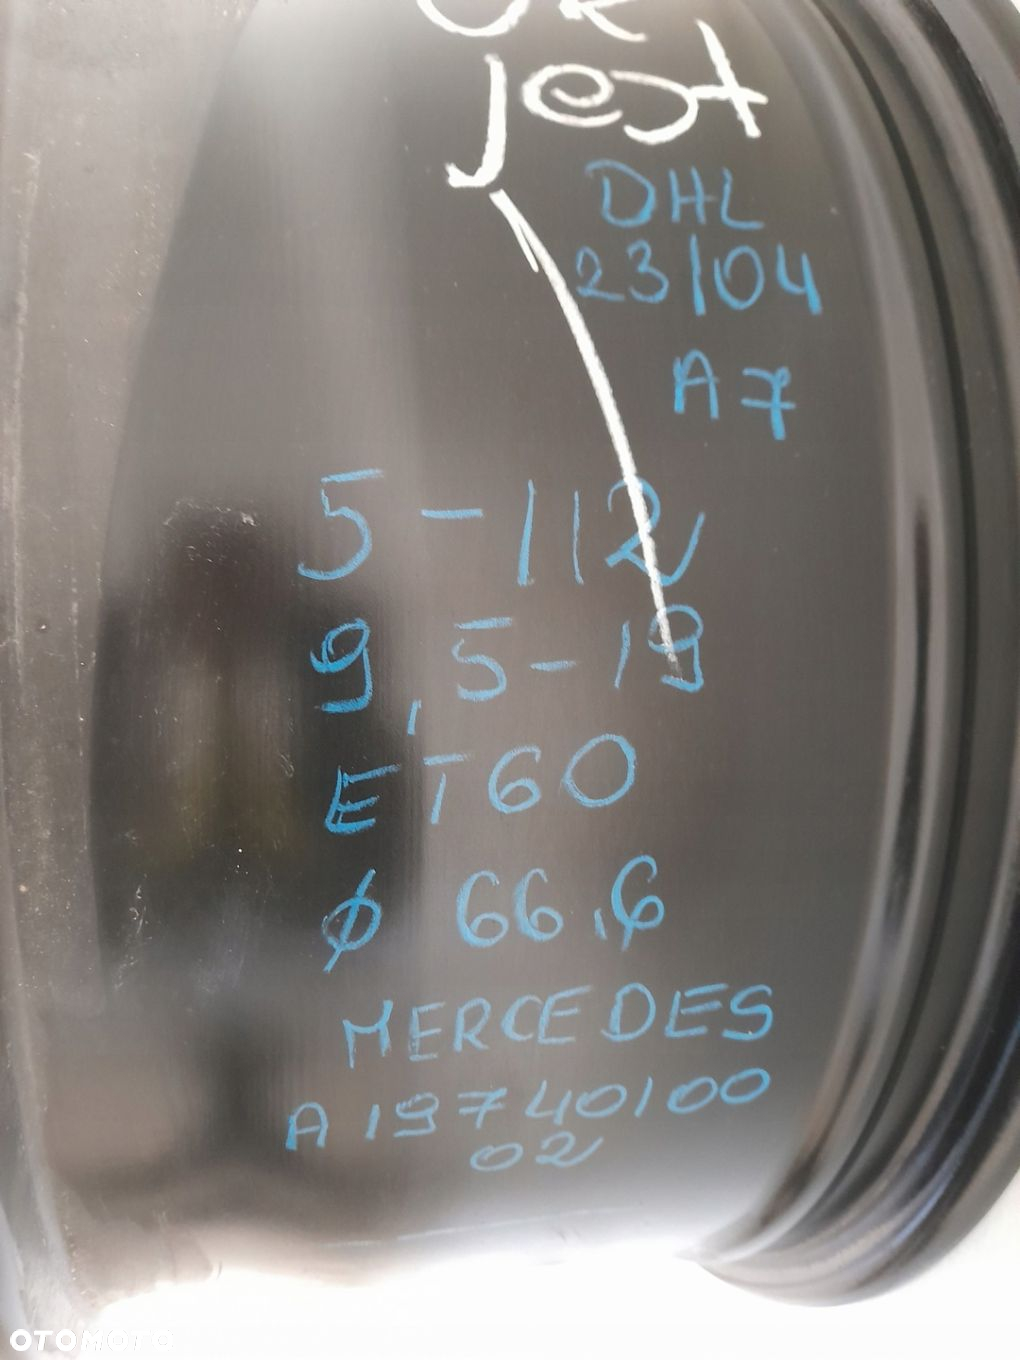 OK
jest
DHL
23/04
A7
5-112
9,5-19
ET60
ø 66,6
MERCEDES
A 197 40100
02
OTOMOTO